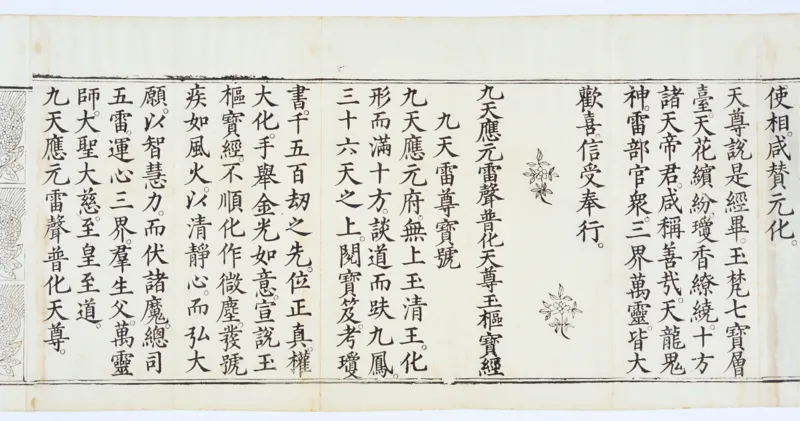 使相。咸賛元化。
天尊說是經畢。玉梵七寶層
臺。天花繽紛。瓊香繚繞。十方
諸天帝君。咸稱善哉。天龍鬼
神。雷部官衆。三界萬靈皆大
歡喜。信受奉行。
九天應元雷聲普化天尊玉樞寶經
九天雷尊寶號
九天應元府。無上玉清王。化
形而滿十方。談道而趺九鳳。
三十六天之上。閱寶笈。考瓊
書。千五百劫之先。位正真。權
大化。手舉金光如意。宣說玉
樞寶經。不順化作微塵。發號
疾如風火。以清靜心。而弘大
願。以智慧力。而伏諸魔。總司
五雷。運心三界。羣生父。萬靈
師。大聖大慈。至皇至道。
九天應元雷聲普化天尊。